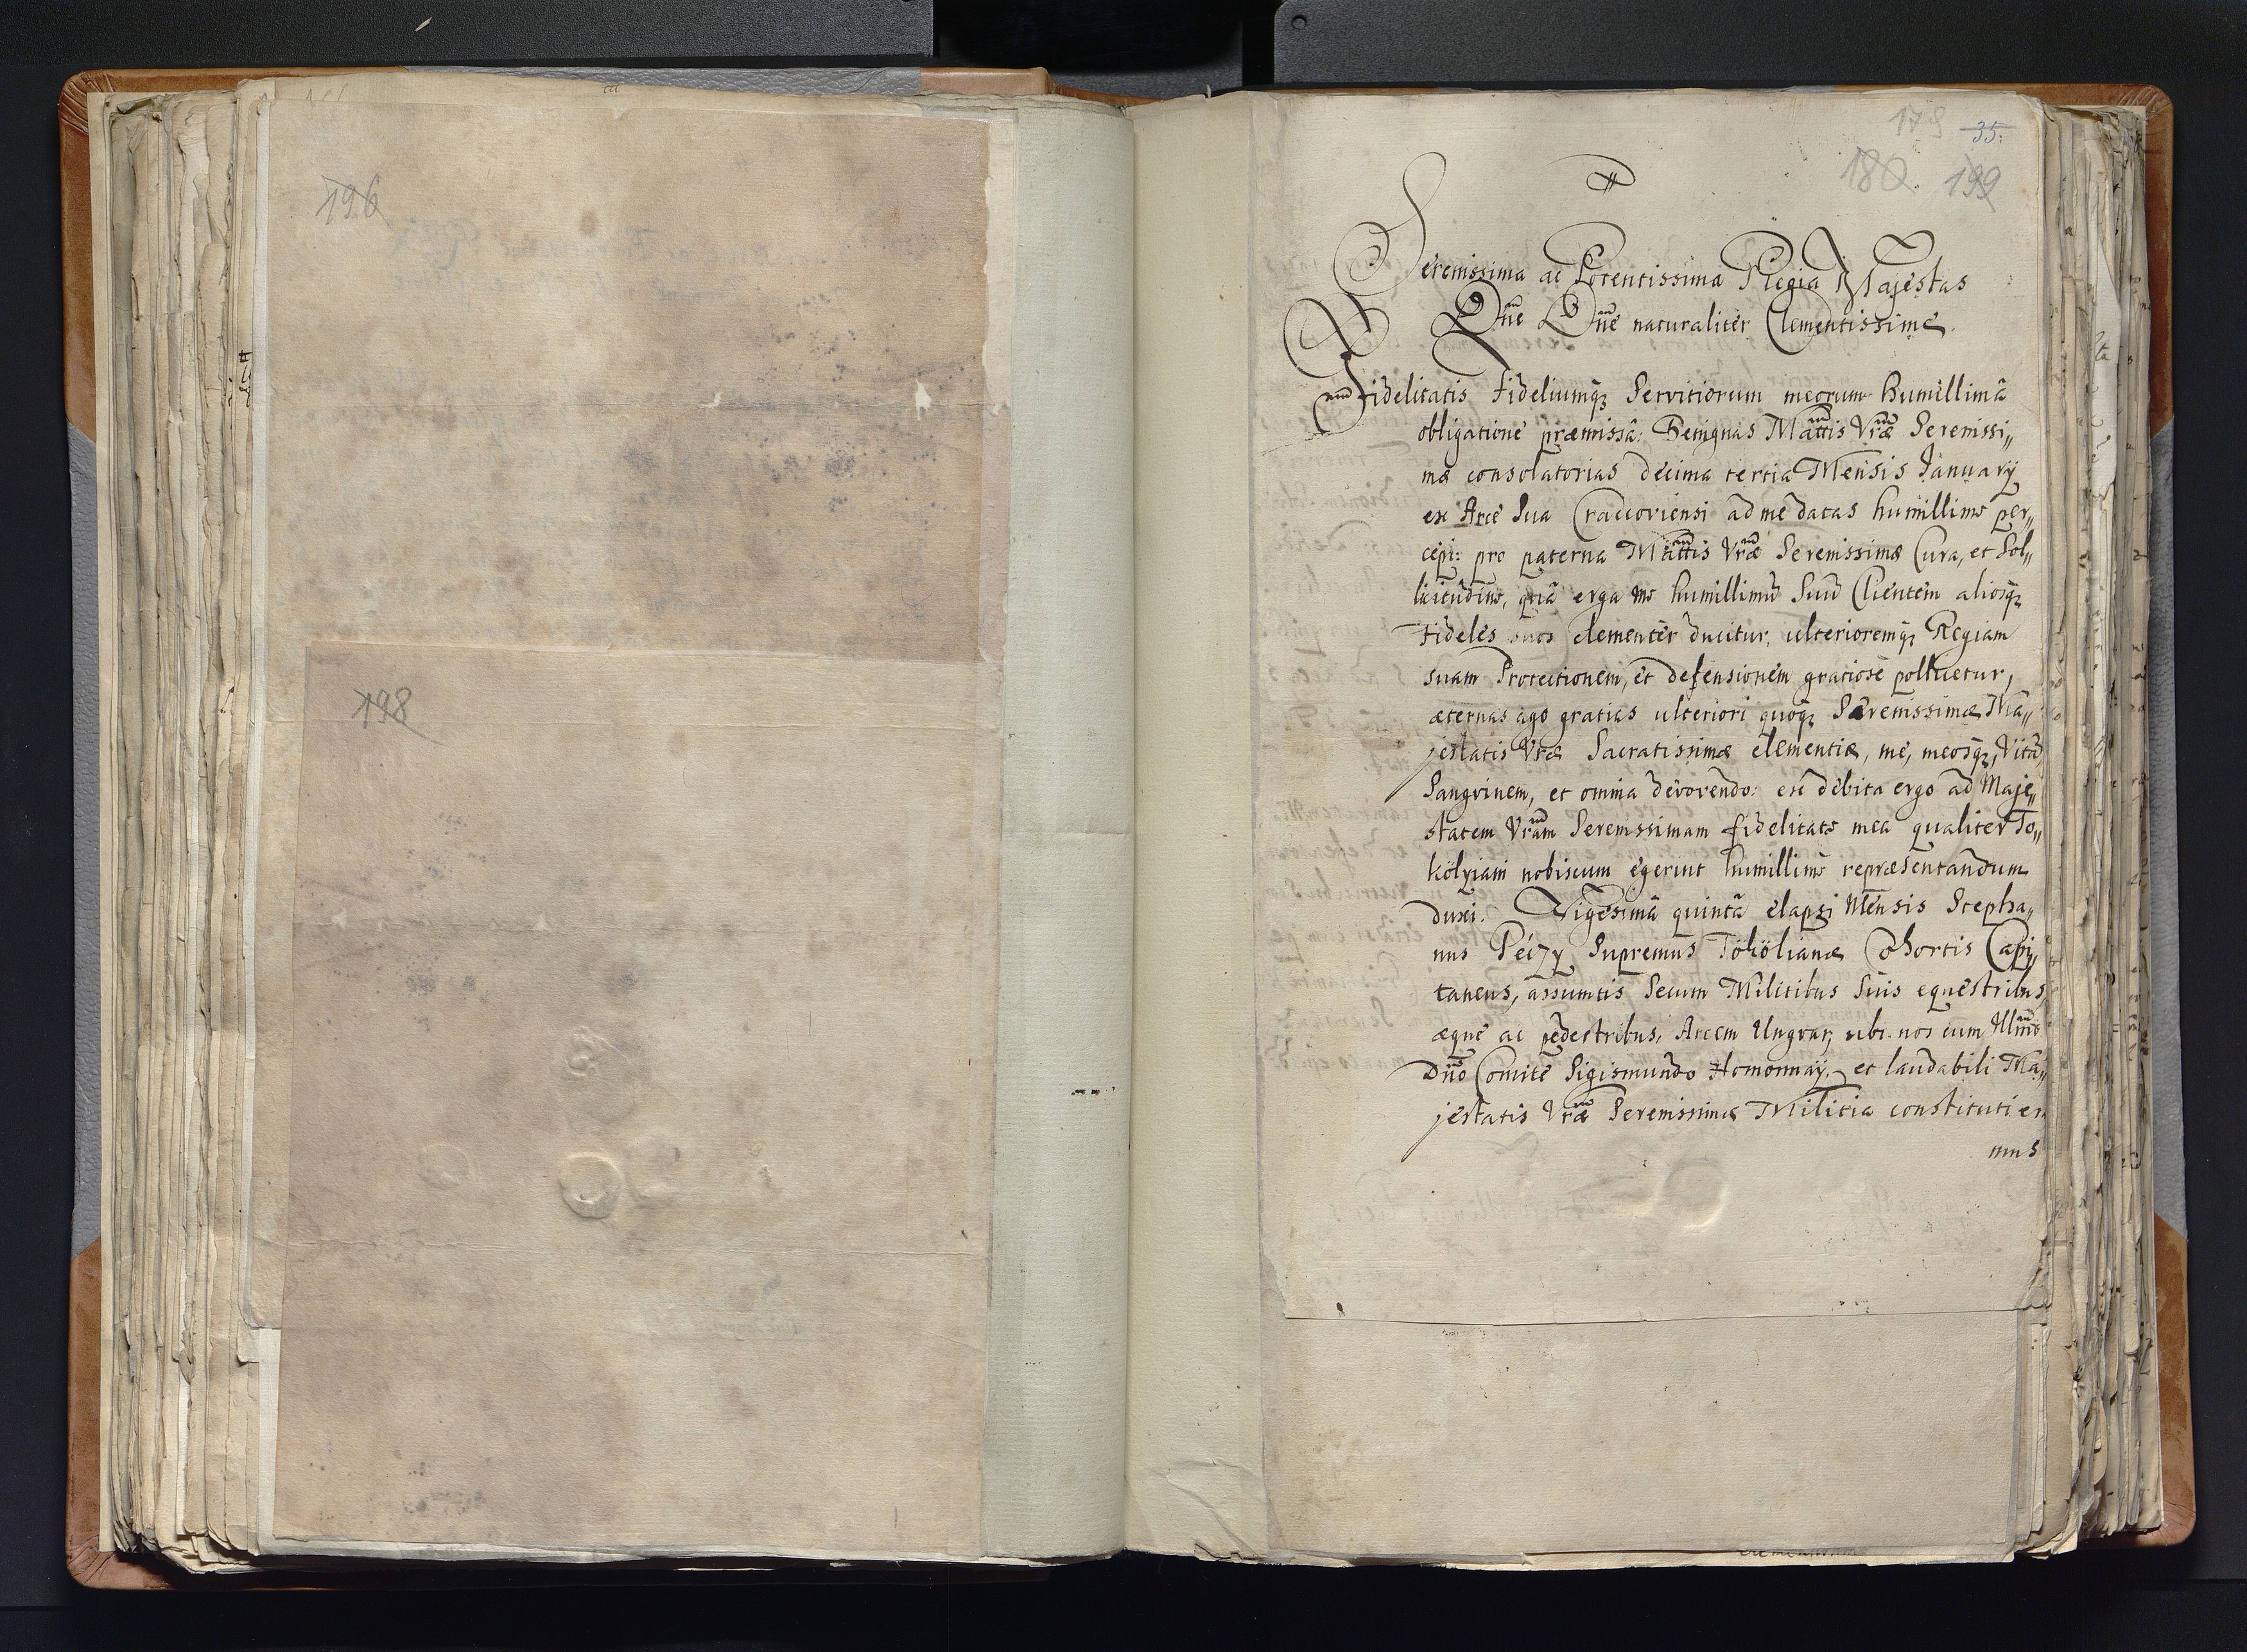 196
198
179 35.
180. 199
Serenissima ac Potentissima Regia Majestas
Dne Dne naturaliter Clementissime.
Fidelitatis Fideliumq Servitiorum meorum humillimâ
obligatione præmissâ: Benignas Mattis Vræ Serenissi„
mæ consolatorias decima tertia Mensis January
ex Arce Sua Cracoviensi ad me datas humillime per„
cepi: pro paterna Mattis Vræ Serenissimæ Cura, et Sol„
licitudine, quâ erga me humillimũ Suũ Clientem aliosq
Fideles suos clementer ducitur, ulterioremq Regiam
suam Protectionem, et defensionem gratiose pollicetur,
æternas ago gratias ulteriori quoq Serenissimæ Ma„
jestatis Vræ Sacratissimæ clementiæ, me, meosq, Vitã,
Sangvinem, et omnia devovendo: ex debita ergo ad Maje„
statem Vram Serenissimam fidelitate mea qualiter Tö„
kölyiani nobiscum egerint humillime repræsentandum
duxi. Vigesimâ quintâ elapsi Mensis Stepha„
nus Péczy Supremus Tököliane Cohortis Capi„
taneus, assumtis Secum Militibus Suis equestribus,
æque ac pedestribus, Arcem Ungvar, ubi nos cum Illmo
Dno Comite Sigismundo Homonnay, et laudabili Ma„
jestatis Vræ Serenissimæ Militia constituti era
mus